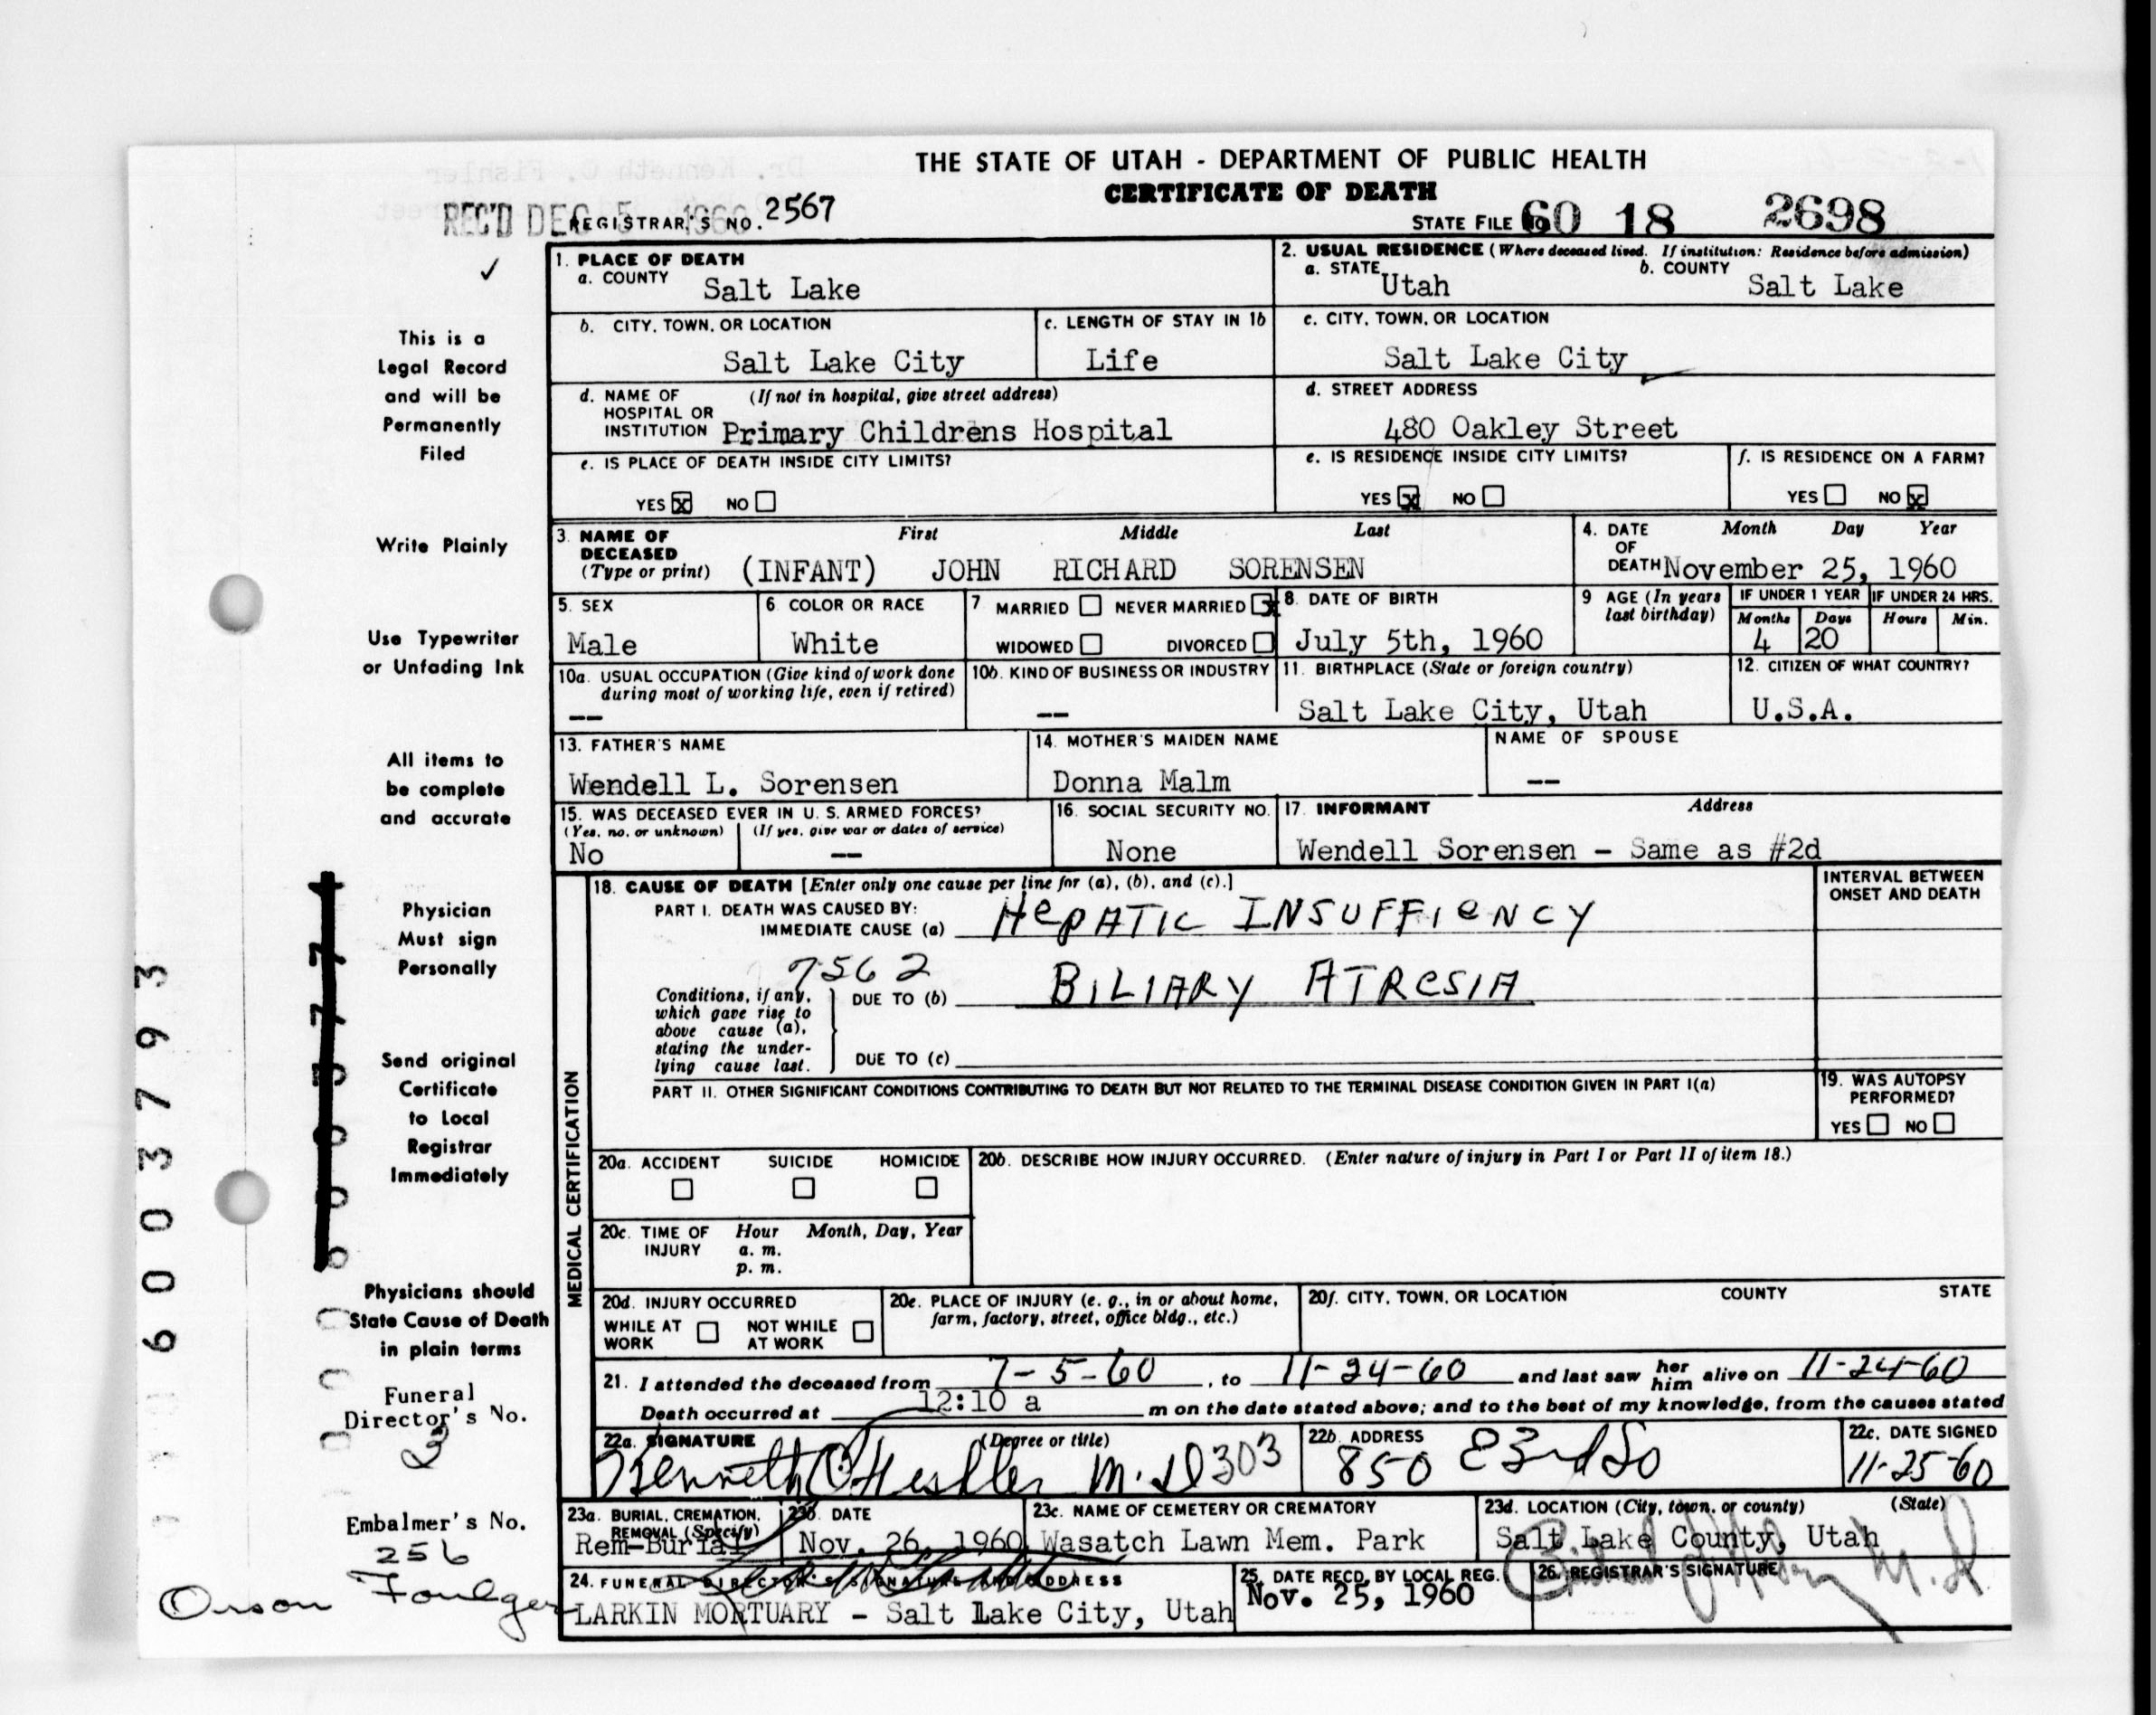 THE STATE OF UTAH - DEPARTMENT OF PUBLIC HEALTH
CERTIFICATE OF DEATH
REC'D DEC 5 1960
REGISTRAR'S NO. 2567
STATE FILE NO. 60 18 2698
1. PLACE OF DEATH
a. COUNTY Salt Lake
2. USUAL RESIDENCE (Where deceased lived. If institution: Residence before admission)
a. STATE Utah b. COUNTY Salt Lake
b. CITY, TOWN, OR LOCATION Salt Lake City
c. LENGTH OF STAY IN 1b Life
c. CITY, TOWN, OR LOCATION Salt Lake City
d. NAME OF HOSPITAL OR INSTITUTION (If not in hospital, give street address) Primary Childrens Hospital
d. STREET ADDRESS 480 Oakley Street
e. IS PLACE OF DEATH INSIDE CITY LIMITS?
YES X NO
e. IS RESIDENCE INSIDE CITY LIMITS?
YES X NO
f. IS RESIDENCE ON A FARM?
YES NO X
3. NAME OF DECEASED (Type or print) First Middle Last
(INFANT) JOHN RICHARD SORENSEN
4. DATE OF DEATH Month Day Year
November 25, 1960
5. SEX Male
6. COLOR OR RACE White
7 MARRIED NEVER MARRIED X
WIDOWED DIVORCED
8. DATE OF BIRTH July 5th, 1960
9 AGE (In years last birthday) IF UNDER 1 YEAR IF UNDER 24 HRS.
Months Days Hours Min.
4 20
10a. USUAL OCCUPATION (Give kind of work done during most of working life, even if retired) --
10b. KIND OF BUSINESS OR INDUSTRY --
11. BIRTHPLACE (State or foreign country) Salt Lake City, Utah
12. CITIZEN OF WHAT COUNTRY? U.S.A.
13. FATHER'S NAME Wendell L. Sorensen
14. MOTHER'S MAIDEN NAME Donna Malm
NAME OF SPOUSE --
15. WAS DECEASED EVER IN U. S. ARMED FORCES?
(Yes, no, or unknown) (If yes, give war or dates of service)
No --
16. SOCIAL SECURITY NO. None
17. INFORMANT Address
Wendell Sorensen - Same as #2d
MEDICAL CERTIFICATION
18. CAUSE OF DEATH [Enter only one cause per line for (a), (b), and (c).]
INTERVAL BETWEEN ONSET AND DEATH
PART I. DEATH WAS CAUSED BY:
IMMEDIATE CAUSE (a) HEPATIC INSUFFIENCY
7562
Conditions, if any, which gave rise to above cause (a), stating the underlying cause last.
DUE TO (b) BILIARY ATRESIA
DUE TO (c)
PART II. OTHER SIGNIFICANT CONDITIONS CONTRIBUTING TO DEATH BUT NOT RELATED TO THE TERMINAL DISEASE CONDITION GIVEN IN PART I(a)
19. WAS AUTOPSY PERFORMED?
YES NO
20a. ACCIDENT SUICIDE HOMICIDE
20b. DESCRIBE HOW INJURY OCCURRED. (Enter nature of injury in Part I or Part II of item 18.)
20c. TIME OF INJURY Hour Month, Day, Year
a. m.
p. m.
20d. INJURY OCCURRED
WHILE AT WORK NOT WHILE AT WORK
20e. PLACE OF INJURY (e. g., in or about home, farm, factory, street, office bldg., etc.)
20f. CITY, TOWN, OR LOCATION COUNTY STATE
21. I attended the deceased from 7-5-60, to 11-24-60 and last saw her him alive on 11-24-60
Death occurred at 12:10 a m on the date stated above; and to the best of my knowledge, from the causes stated
22a. SIGNATURE (Degree or title)
Kenneth O. M.D 303
22b. ADDRESS 850 E 3rd So
22c. DATE SIGNED 11-25-60
23a. BURIAL, CREMATION, REMOVAL (Specify) Rem-Burial
23b. DATE Nov. 26, 1960
23c. NAME OF CEMETERY OR CREMATORY Wasatch Lawn Mem. Park
23d. LOCATION (City, town, or county) (State)
Salt Lake County, Utah
24. FUNERAL DIRECTOR'S SIGNATURE AND ADDRESS
LARKIN MORTUARY - Salt Lake City, Utah
25. DATE RECD. BY LOCAL REG. Nov. 25, 1960
26. REGISTRAR'S SIGNATURE
M.D.
This is a
Legal Record
and will be
Permanently
Filed
Write Plainly
Use Typewriter
or Unfading Ink
All items to
be complete
and accurate
Physician
Must sign
Personally
Send original
Certificate
to Local
Registrar
Immediately
Physicians should
State Cause of Death
in plain terms
Funeral
Director's No.
3
Embalmer's No.
256
Orson Foulger
6003793